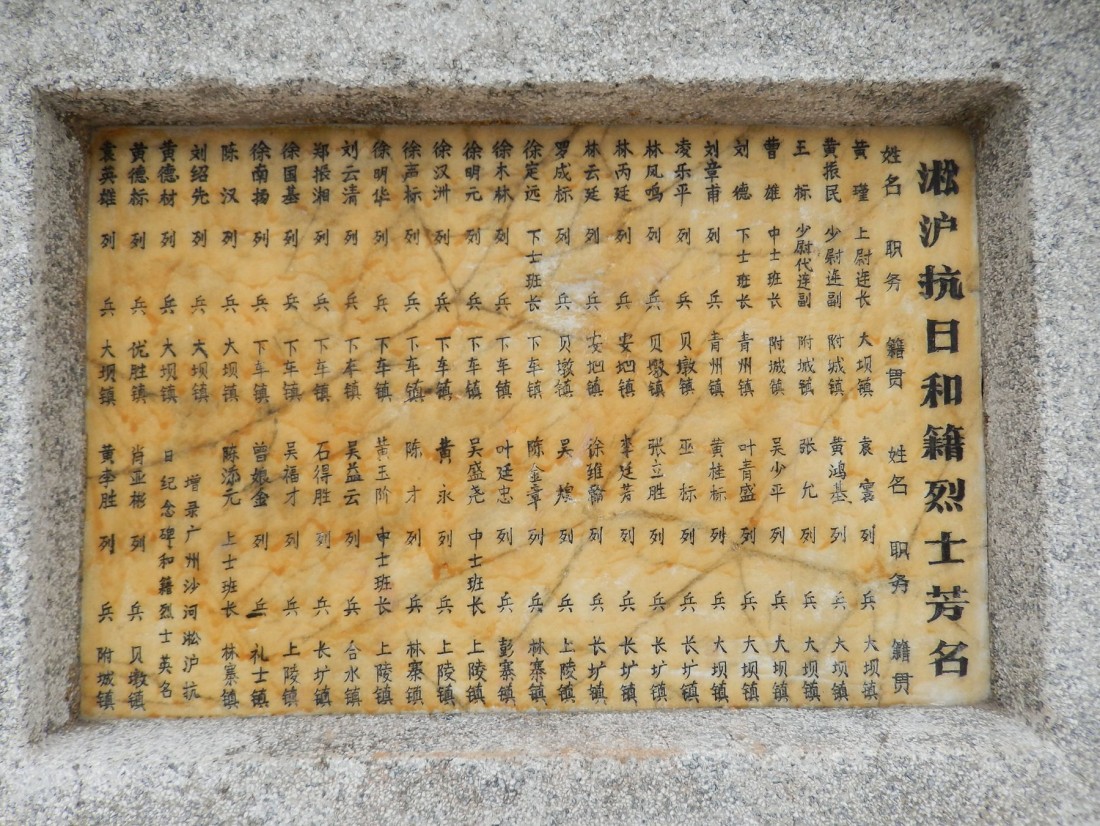 淞沪抗日和籍烈士芳名
姓名 职务 籍贯
黄瑾 上尉连长 大坝镇
黄振民 少尉连副 附城镇
王标 少尉代连副 附城镇
曹雄 中士班长 附城镇
刘德 下士班长 青州镇
刘章甫 列兵 青州镇
凌乐平 列兵 贝墩镇
林凤鸣 列兵 贝墩镇
林丙廷 列兵 安坳镇
林云廷 列兵 安坳镇
罗成标 列兵 贝墩镇
徐定远 下士班长 下车镇
徐木林 列兵 下车镇
徐明元 列兵 下车镇
徐汉洲 列兵 下车镇
徐声标 列兵 下车镇
徐明华 列兵 下车镇
刘云清 列兵 下车镇
郑振湘 列兵 下车镇
徐国基 列兵 下车镇
徐南扬 列兵 下车镇
陈汉 列兵 大坝镇
刘绍先 列兵 大坝镇
黄德材 列兵 大坝镇
黄德标 列兵 优胜镇
袁英雄 列兵 大坝镇
姓名 职务 籍贯
袁寰 列兵 大坝镇
黄鸿基 列兵 大坝镇
张允 列兵 大坝镇
吴少平 列兵 大坝镇
叶青盛 列兵 大坝镇
黄桂标 列兵 大坝镇
巫标 列兵 长圹镇
张立胜 列兵 长圹镇
李廷芳 列兵 长圹镇
徐维 列兵 长圹镇
吴煌 列兵 上陵镇
陈金章 列兵 林寨镇
叶廷忠 列兵 彭寨镇
吴盛尧 中士班长 上陵镇
黄永 列兵 上陵镇
陈才 列兵 林寨镇
黄玉阶 中士班长 上陵镇
吴益云 列兵 合水镇
石得胜 列兵 长圹镇
吴福才 列兵 上陵镇
曾娘金 列兵 礼士镇
陈添元 上士班长 林寨镇
增录广州沙河淞沪抗
日纪念碑和籍烈士英名
肖亚彬 列兵 贝墩镇
黄李胜 列兵 附城镇